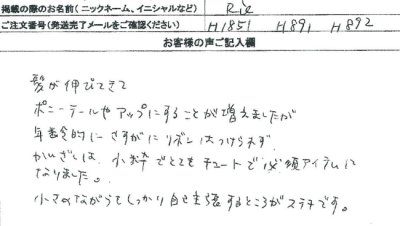 掲載の際のお名前(ニックネーム、イニシャルなど) Rie
ご注文番号(発送完了メールをご確認ください) H1851 H891 H892
お客様の声ご記入欄
髪が伸びてきて
ポニーテールやアップにすることが増えましたが
年齢的にさすがにリボンはつけられず、
かんざしは、小粋でとてもキュートで必須アイテムに
なりました。
小さいながらもしっかり自己主張するところがステキです。